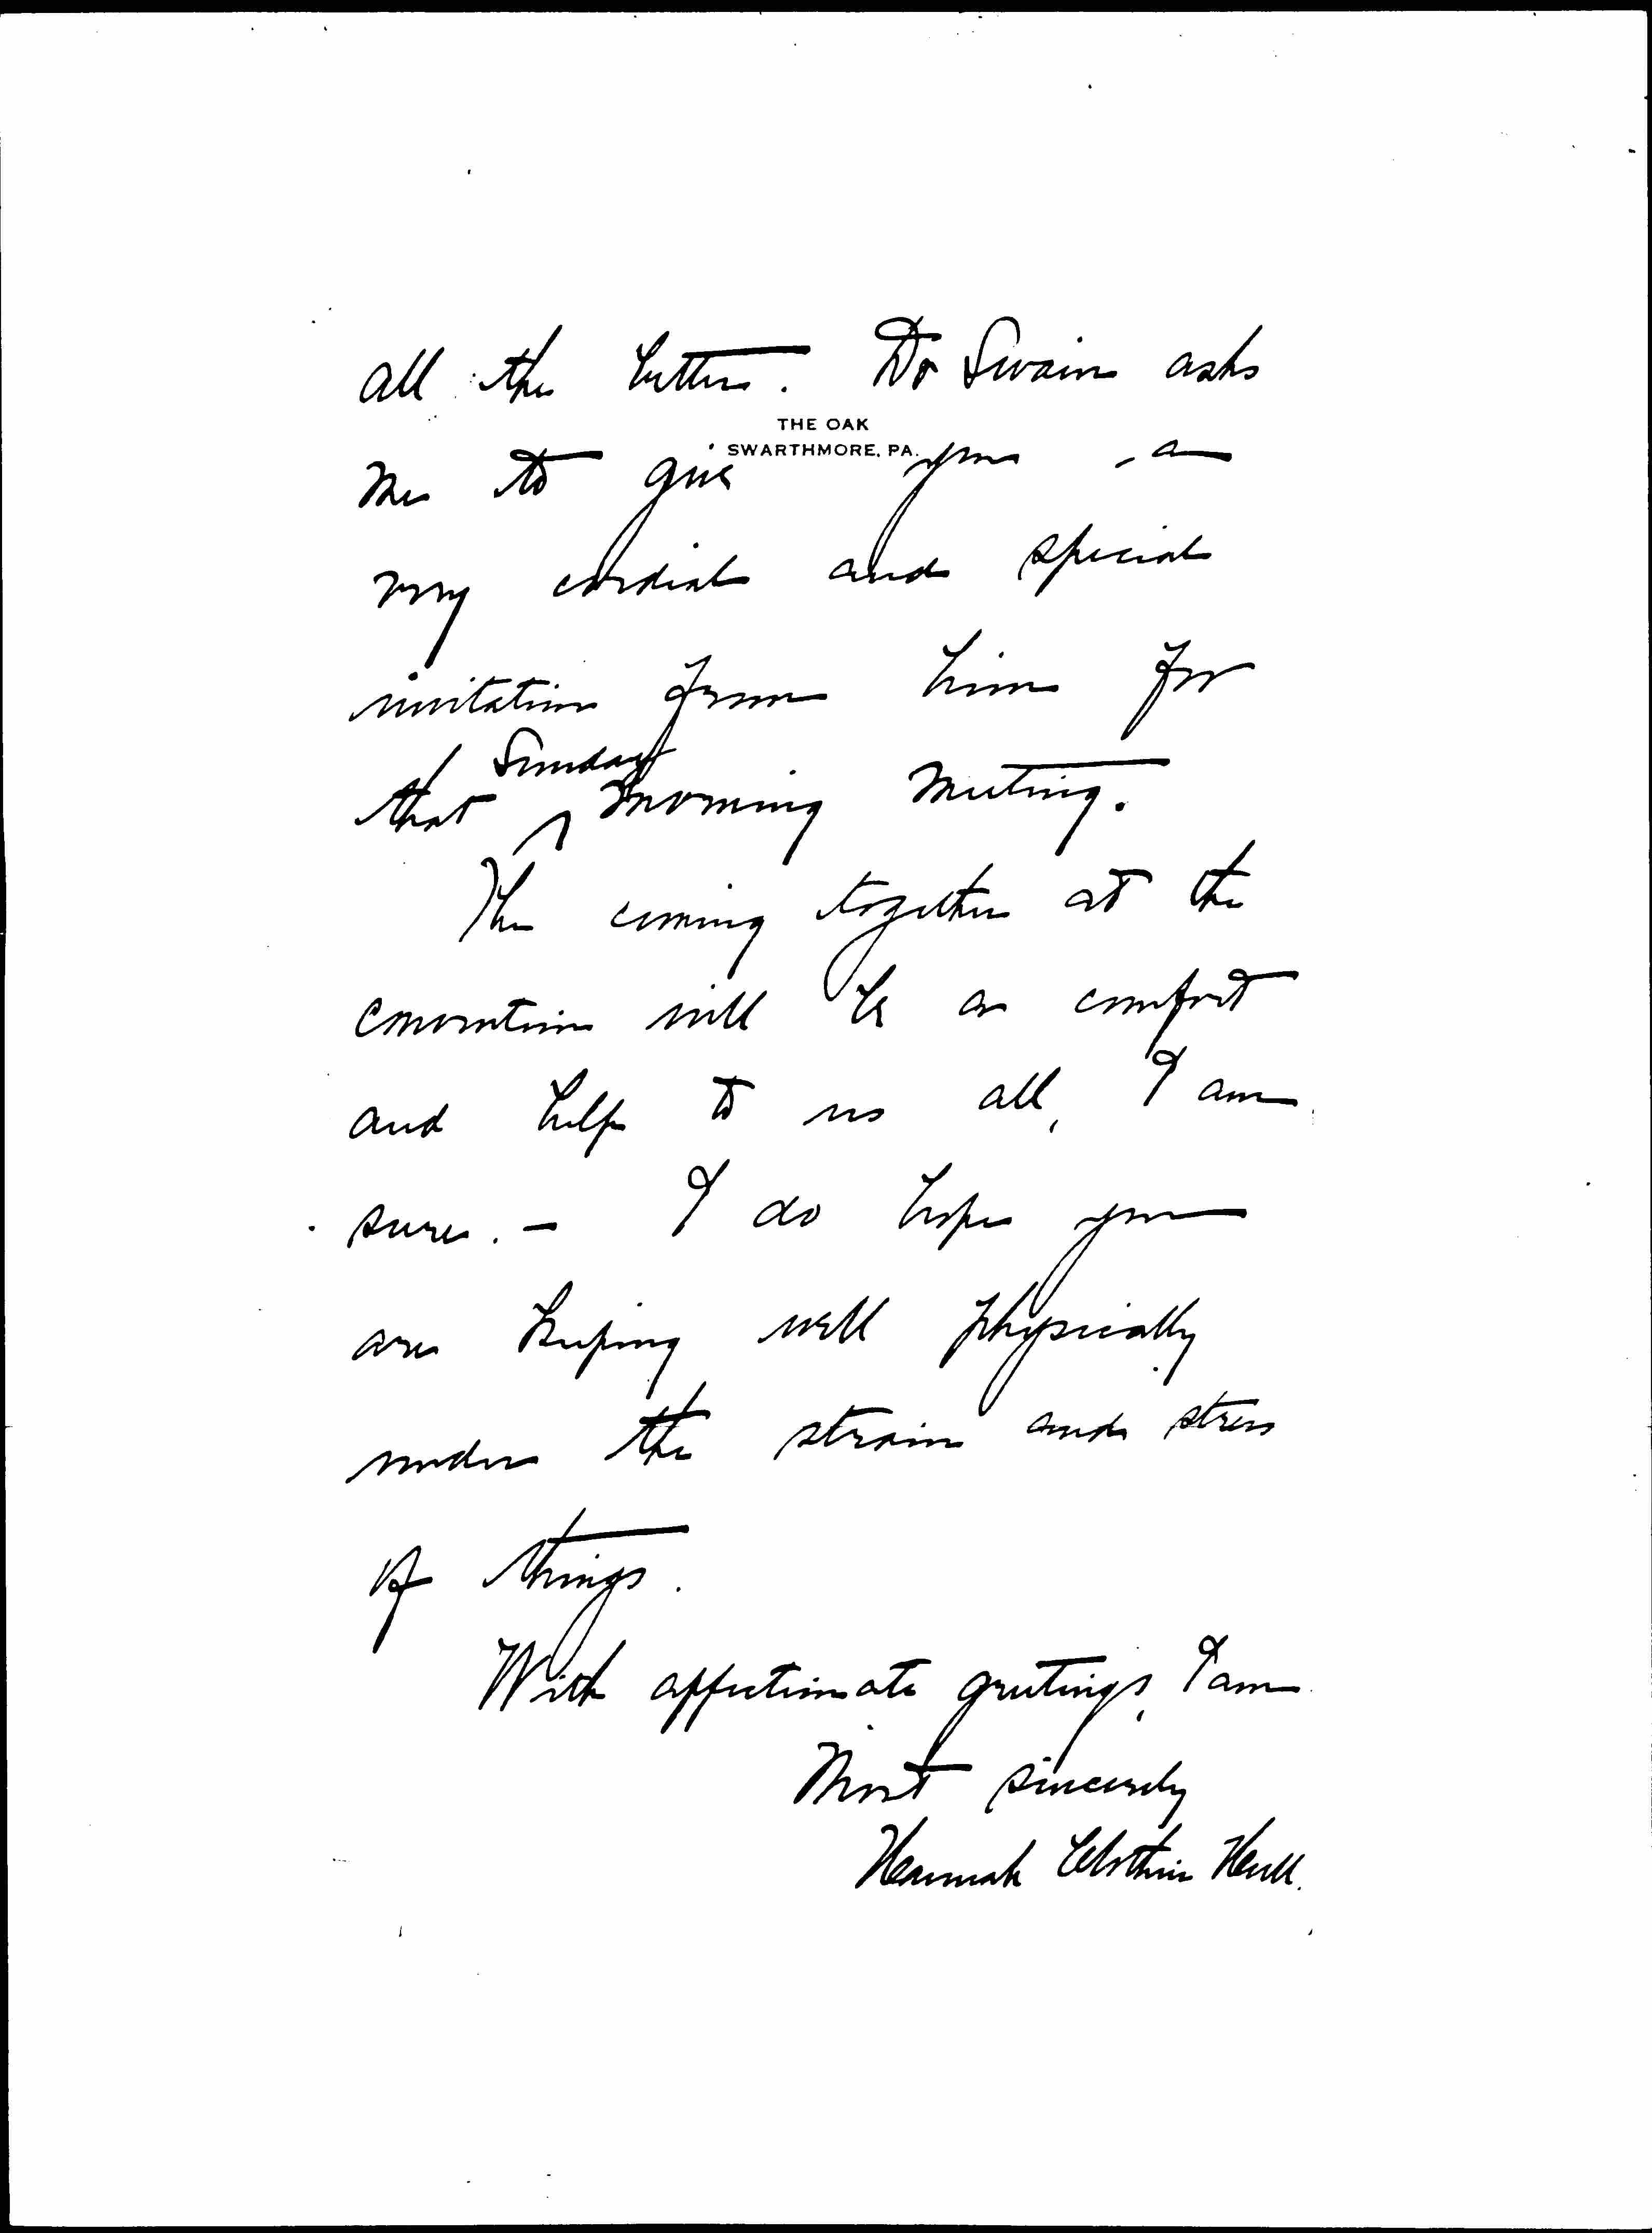 all the better. Dr Swain asks
THE OAK
SWARTHMORE, PA.
me to give you a
very cordial and special
invitation from him for
Sunday
that ^ morning meeting.
The coming together at the
convention will be a comfort
and help to us all, I am
sure. - I do hope you
are keeping well physically
under the strain and stress
of things.
With affectionate greetings, I am
Most sincerely
Hannah Clothier Hull.